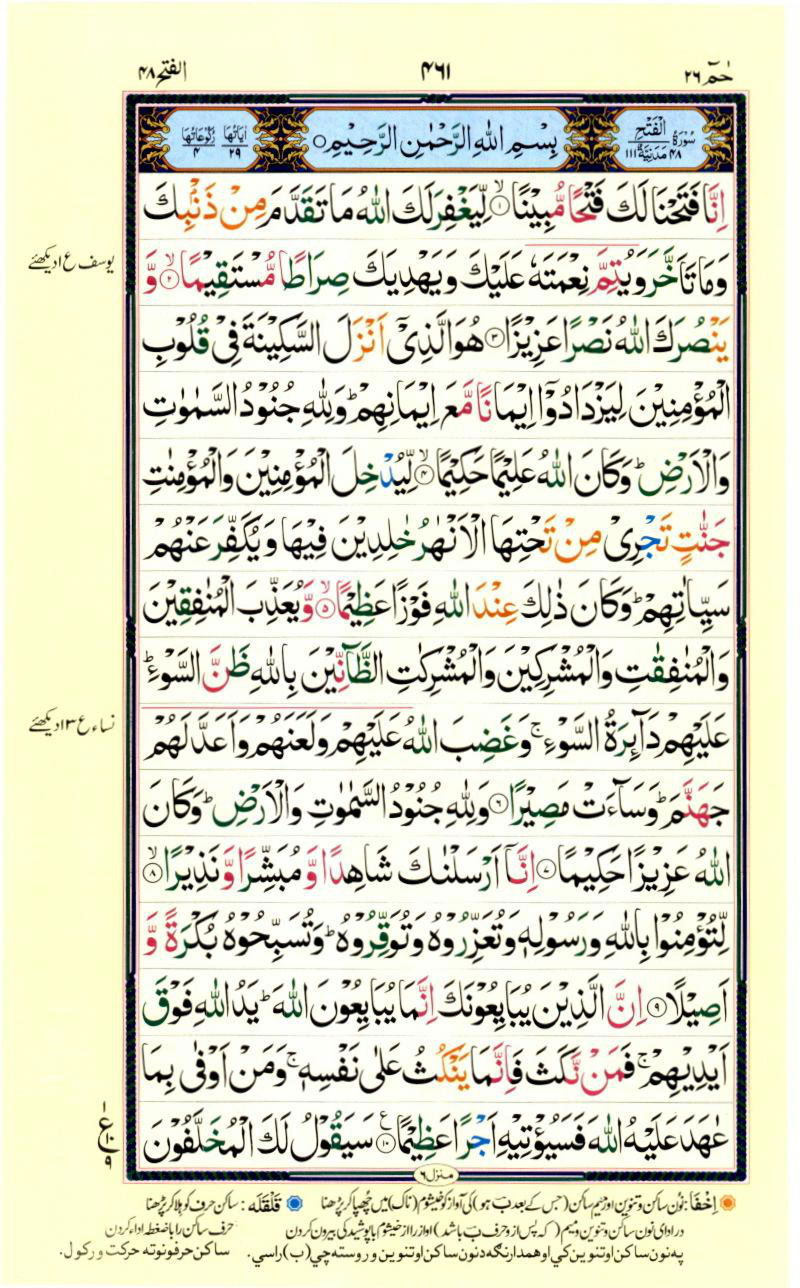 حٰمٓ ۲۶
۴۶۱
الفتح ۴۸
سُوْرَةُ الْفَتْحِ مَدَنِیَّةٌ ۴۸ ۱۱۱
بِسْمِ اللهِ الرَّحْمٰنِ الرَّحِیْمِ
اٰیَاتُهَا ۲۹ رُكُوْعَاتُهَا ۴
اِنَّا فَتَحْنَا لَكَ فَتْحًا مُّبِیْنًا ۙ﴿۱﴾ لِّیَغْفِرَ لَكَ اللهُ مَا تَقَدَّمَ مِنْ ذَنْۢبِكَ
وَمَا تَاَخَّرَ وَیُتِمَّ نِعْمَتَهٗ عَلَیْكَ وَیَهْدِیَكَ صِرَاطًا مُّسْتَقِیْمًا ۙ﴿۲﴾ وَّ
یَنْصُرَكَ اللهُ نَصْرًا عَزِیْزًا ﴿۳﴾ هُوَ الَّذِیْۤ اَنْزَلَ السَّكِیْنَةَ فِیْ قُلُوْبِ
الْمُؤْمِنِیْنَ لِیَزْدَادُوْۤا اِیْمَانًا مَّعَ اِیْمَانِهِمْ ؕ وَلِلّٰهِ جُنُوْدُ السَّمٰوٰتِ
وَالْاَرْضِ ؕ وَكَانَ اللهُ عَلِیْمًا حَكِیْمًا ۙ﴿۴﴾ لِّیُدْخِلَ الْمُؤْمِنِیْنَ وَالْمُؤْمِنٰتِ
جَنّٰتٍ تَجْرِیْ مِنْ تَحْتِهَا الْاَنْهٰرُ خٰلِدِیْنَ فِیْهَا وَیُكَفِّرَ عَنْهُمْ
سَیِّاٰتِهِمْ ؕ وَكَانَ ذٰلِكَ عِنْدَ اللهِ فَوْزًا عَظِیْمًا ۙ﴿۵﴾ وَّیُعَذِّبَ الْمُنٰفِقِیْنَ
وَالْمُنٰفِقٰتِ وَالْمُشْرِكِیْنَ وَالْمُشْرِكٰتِ الظَّآنِّیْنَ بِاللهِ ظَنَّ السَّوْءِ ؕ
عَلَیْهِمْ دَآئِرَةُ السَّوْءِ ۚ وَغَضِبَ اللهُ عَلَیْهِمْ وَلَعَنَهُمْ وَاَعَدَّ لَهُمْ
جَهَنَّمَ ؕ وَسَآءَتْ مَصِیْرًا ﴿۶﴾ وَلِلّٰهِ جُنُوْدُ السَّمٰوٰتِ وَالْاَرْضِ ؕ وَكَانَ
اللهُ عَزِیْزًا حَكِیْمًا ﴿۷﴾ اِنَّاۤ اَرْسَلْنٰكَ شَاهِدًا وَّ مُبَشِّرًا وَّ نَذِیْرًا ۙ﴿۸﴾
لِّتُؤْمِنُوْا بِاللهِ وَرَسُوْلِهٖ وَتُعَزِّرُوْهُ وَتُوَقِّرُوْهُ ؕ وَتُسَبِّحُوْهُ بُكْرَةً وَّ
اَصِیْلًا ﴿۹﴾ اِنَّ الَّذِیْنَ یُبَایِعُوْنَكَ اِنَّمَا یُبَایِعُوْنَ اللهَ ؕ یَدُ اللهِ فَوْقَ
اَیْدِیْهِمْ ۚ فَمَنْ نَّكَثَ فَاِنَّمَا یَنْكُثُ عَلٰی نَفْسِهٖ ۚ وَمَنْ اَوْفٰی بِمَا
عٰهَدَ عَلَیْهُ اللهَ فَسَیُؤْتِیْهِ اَجْرًا عَظِیْمًا ﴿۱۰﴾ سَیَقُوْلُ لَكَ الْمُخَلَّفُوْنَ
یوسف ع ۱ دیکھئے
نساء ع ۱۳ دیکھئے
ع
۱
۱۰
۹
منزل ۶
اِخْفَا: نون ساکن و تنوین اور میم ساکن (جس کے بعد بؔ ہو) کی آواز کو خیشوم (ناک) میں چھپا کر پڑھنا
قَلْقَلَه: ساکن حرف کو ہلا کر پڑھنا
در ادای نون ساکن و تنوین و میم (که پس از و حرف بؔ باشد) آواز را از خیشوم پوشیدگی بیرون کردن
حرف ساکن را با ضغطه اداء کردن
په نون ساکن او تنوین کي او همدارنگه د نون ساکن او تنوین وروسته چي (ب) راسي.
ساکن حرفونو ته حرکت ورکول.